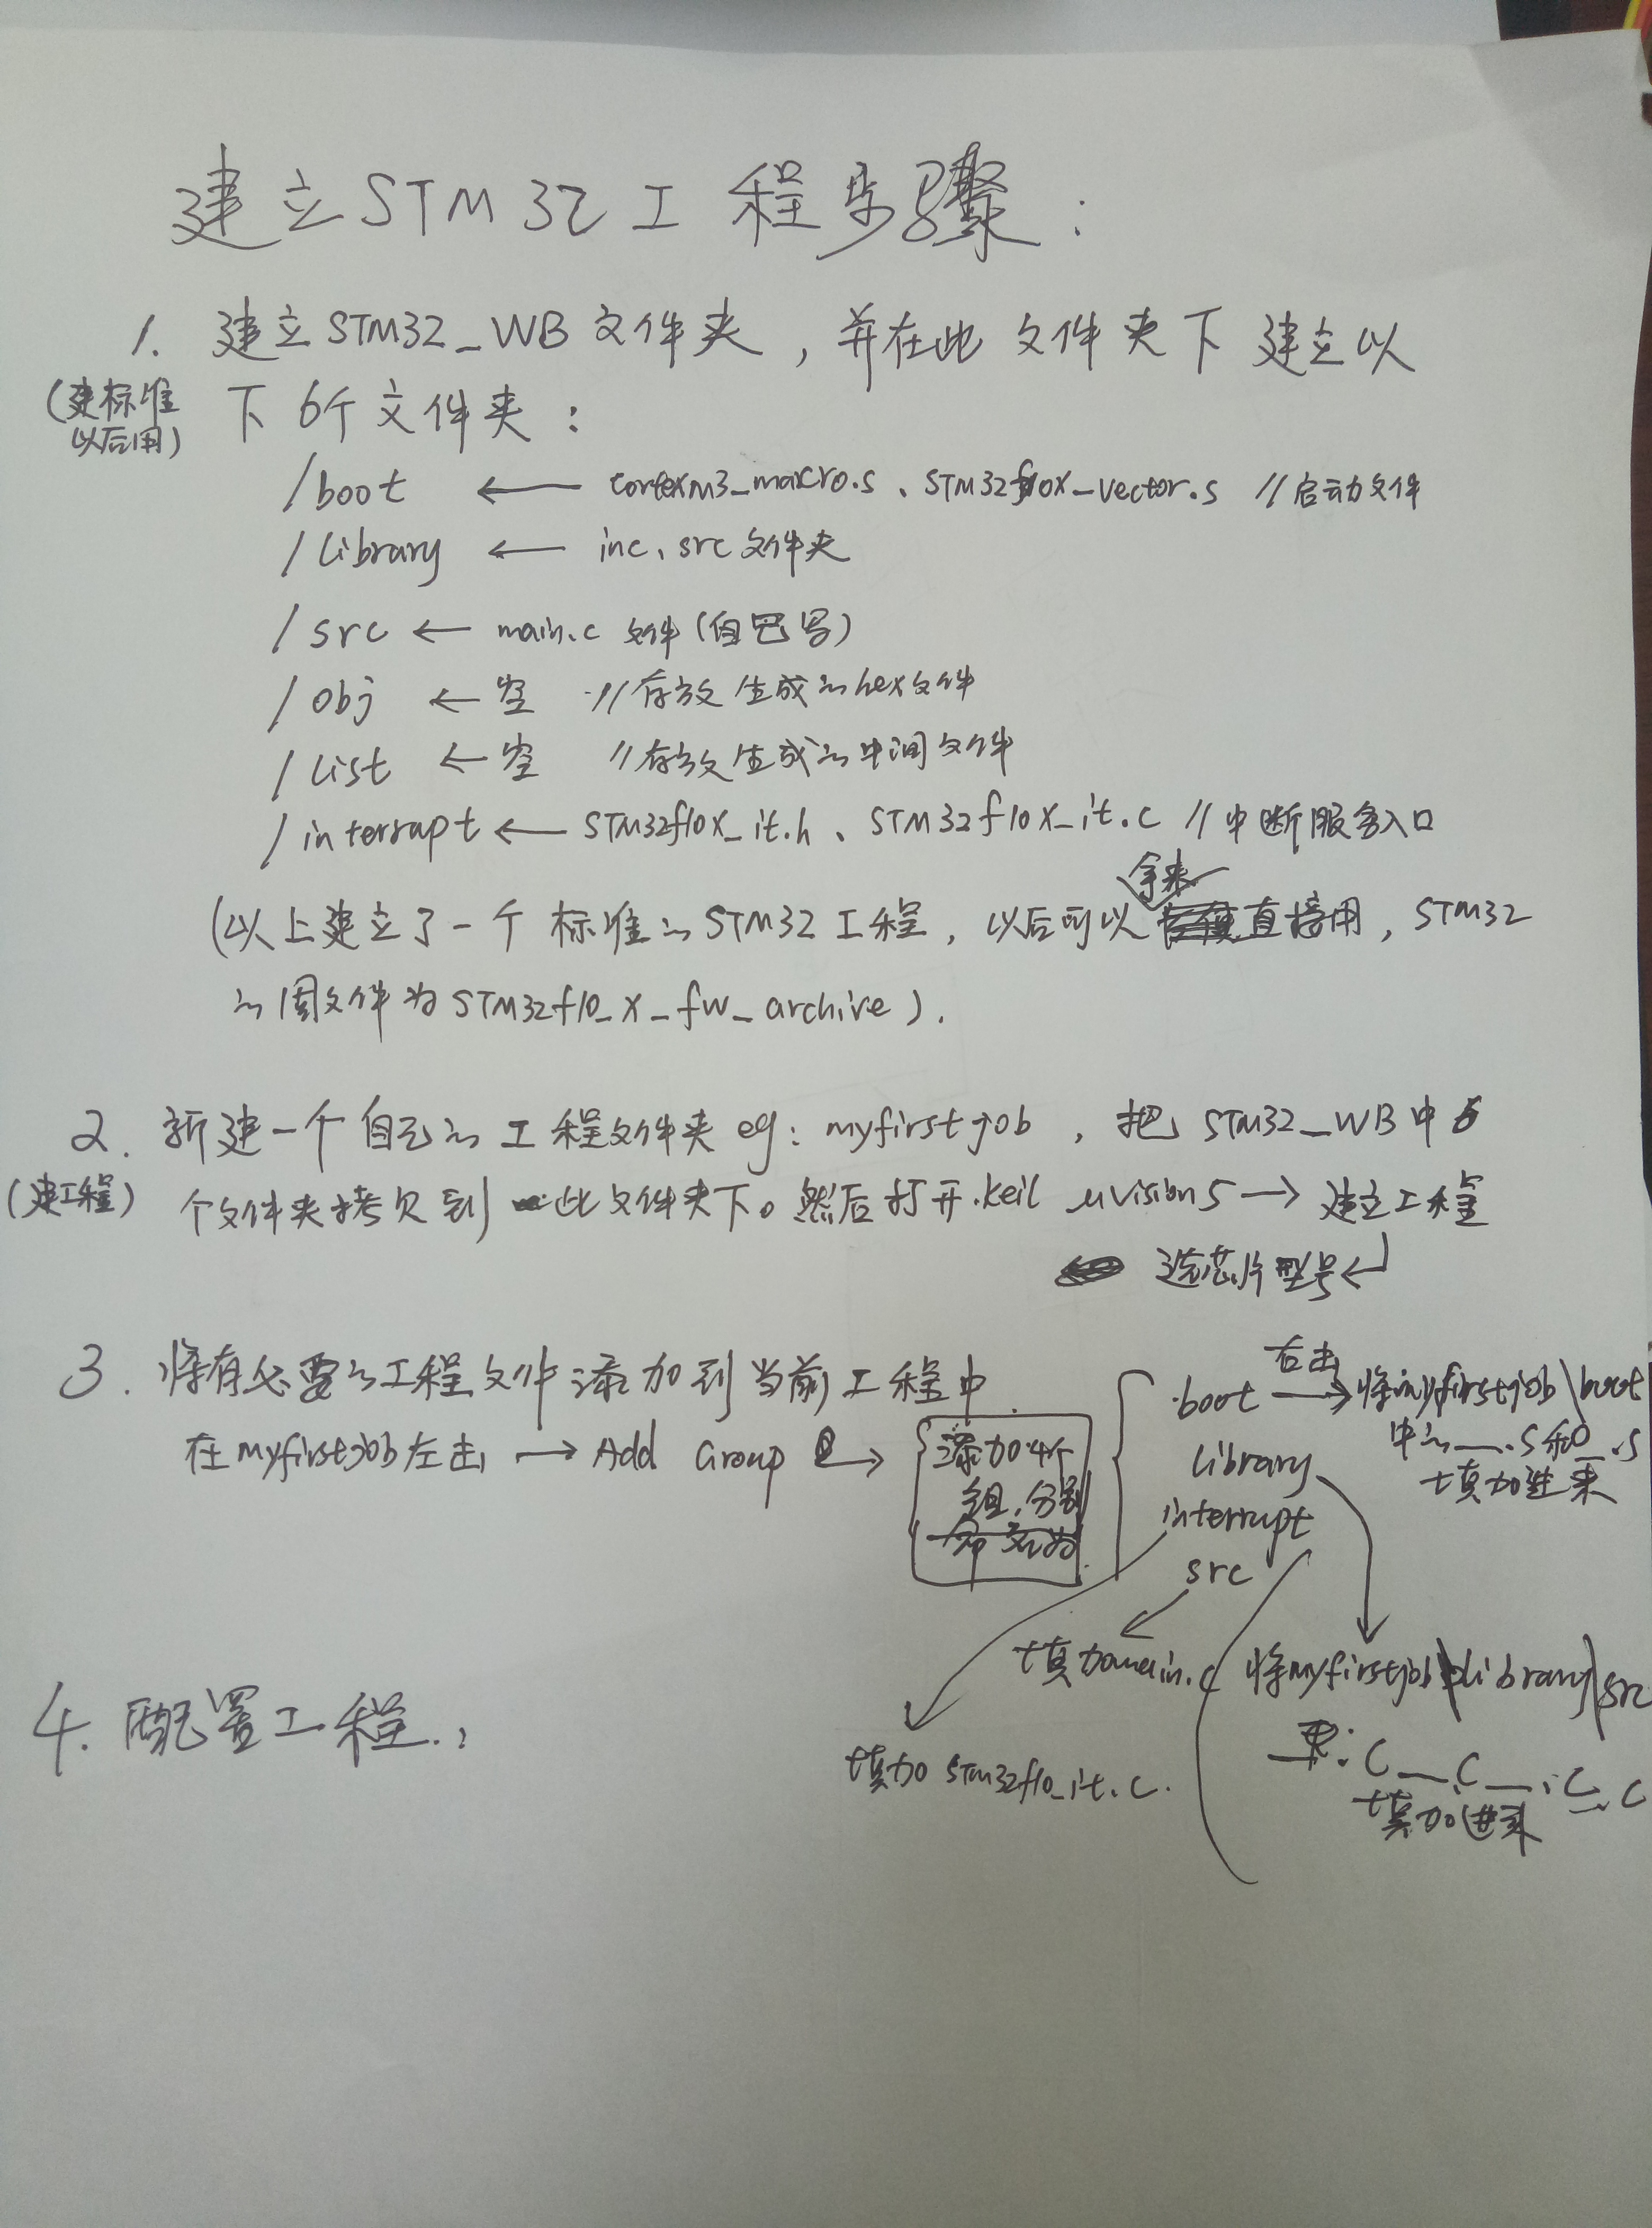 建立STM32工程步骤：
1. 建立STM32_WB文件夹，并在此文件夹下建立以
(建标准
以后用)
下6个文件夹：
/boot ← cortexm3_macro.s、STM32f10x_vector.s //启动文件
/library ← inc、src文件夹
/src ← main.c 文件(自己写)
/obj ← 空 //存放生成的hex文件
/list ← 空 //存放生成的中间文件
/interrupt ← STM32f10x_it.h、STM32f10x_it.c //中断服务入口
(以上建立了一个标准的STM32工程，以后可以拿来直接用，STM32
的固文件为STM32f10_x_fw_archive).
2. 新建一个自己的工程文件夹eg: myfirstjob，把STM32_WB中6
(建工程)
个文件夹拷贝到此文件夹下。然后打开.keil uvision5→建立工程
选芯片型号←
3. 将有必要的工程文件添加到当前工程中
在myfirstjob左击 → Add Group →
添加4个
组,分别
命名为
boot 右击→ 将myfirstjob\boot
中的__.s和__.s
填加进来
library
interrupt
src
填加main.c
将myfirstjob\library\src
里.c__.c__.c__.c
填加进来
填加 STM32f10_it.c.
4. 配置工程.: